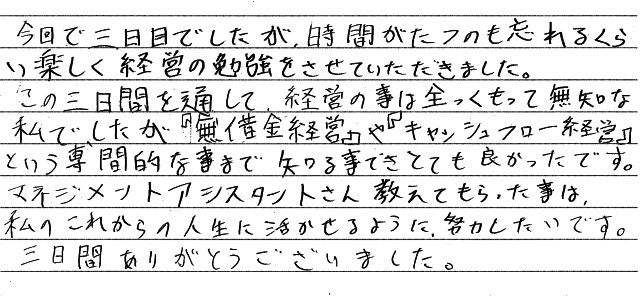 今回で三日目でしたが、時間がたつのも忘れるくら
い楽しく経営の勉強をさせていただきました。
この三日間を通して、経営の事は全っくもって無知な
私でしたが『無借金経営』や『キャッシュフロー経営』
という専間的な事まで知る事できとても良かったです。
マネジメントアシスタントさん教えてもらった事は、
私のこれからの人生に活かせるように、努力したいです。
三日間ありがとうございました。